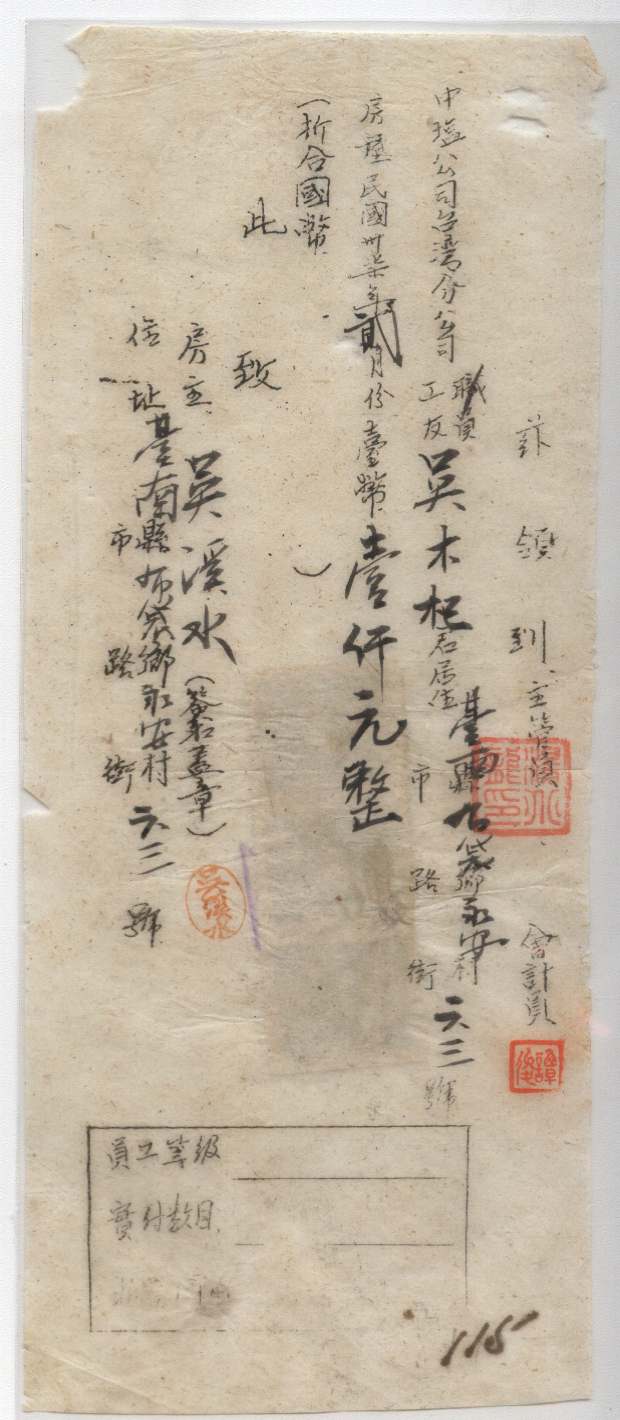 玆領到 主管員 會計員
中塩公司台灣分公司職員工友吳木杞君居住臺南縣市布袋鄉路永安村街六三號
房租民國卅柒年貳月份臺幣壹仟元整
(折合國幣 )
此
致
房主 吳溪水 (簽名蓋章)
住址 臺南縣市布袋鄉路永安村街六三號
吳溪水
員工等級
實付數目
115